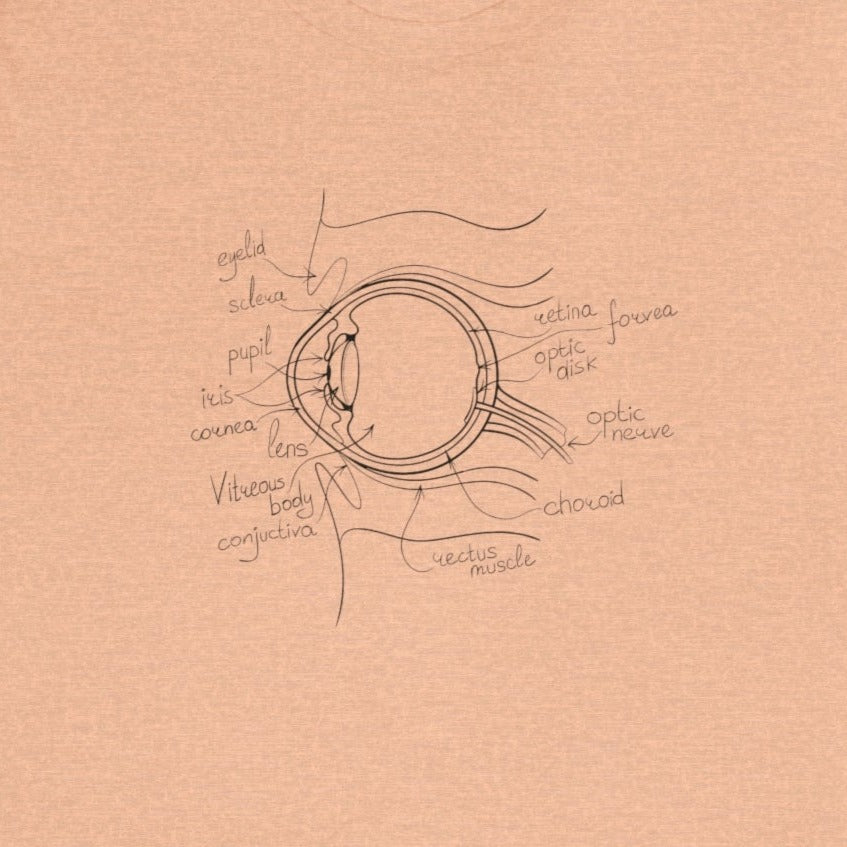 eyelid
sclera
pupil
iris
cornea
lens
Vitreous
body
conjuctiva
retina
forvea
optic
disk
optic
nerve
choroid
rectus
muscle